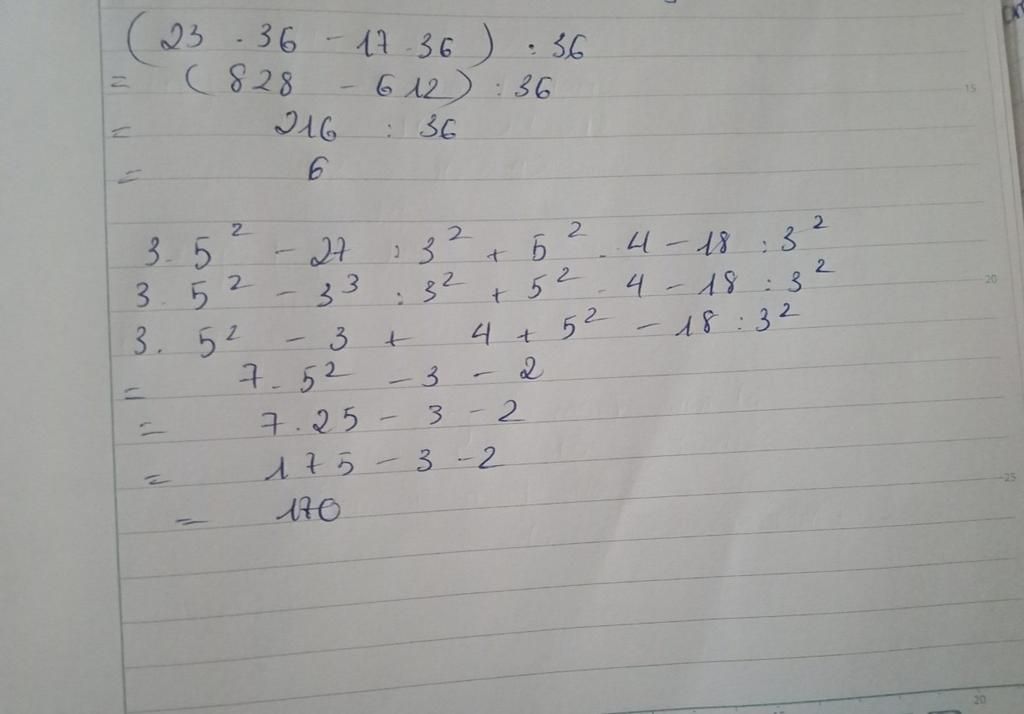 (23 . 36 - 17 . 36) : 36
= (828 - 612) : 36
= 216 : 36
= 6
3 . 5² - 27 : 3² + 5² . 4 - 18 : 3²
3 . 5² - 3³ : 3² + 5² . 4 - 18 : 3²
3 . 5² - 3 + 4 + 5² - 18 : 3²
= 7 . 5² - 3 - 2
= 7 . 25 - 3 - 2
= 175 - 3 - 2
= 170
15
20
25
20